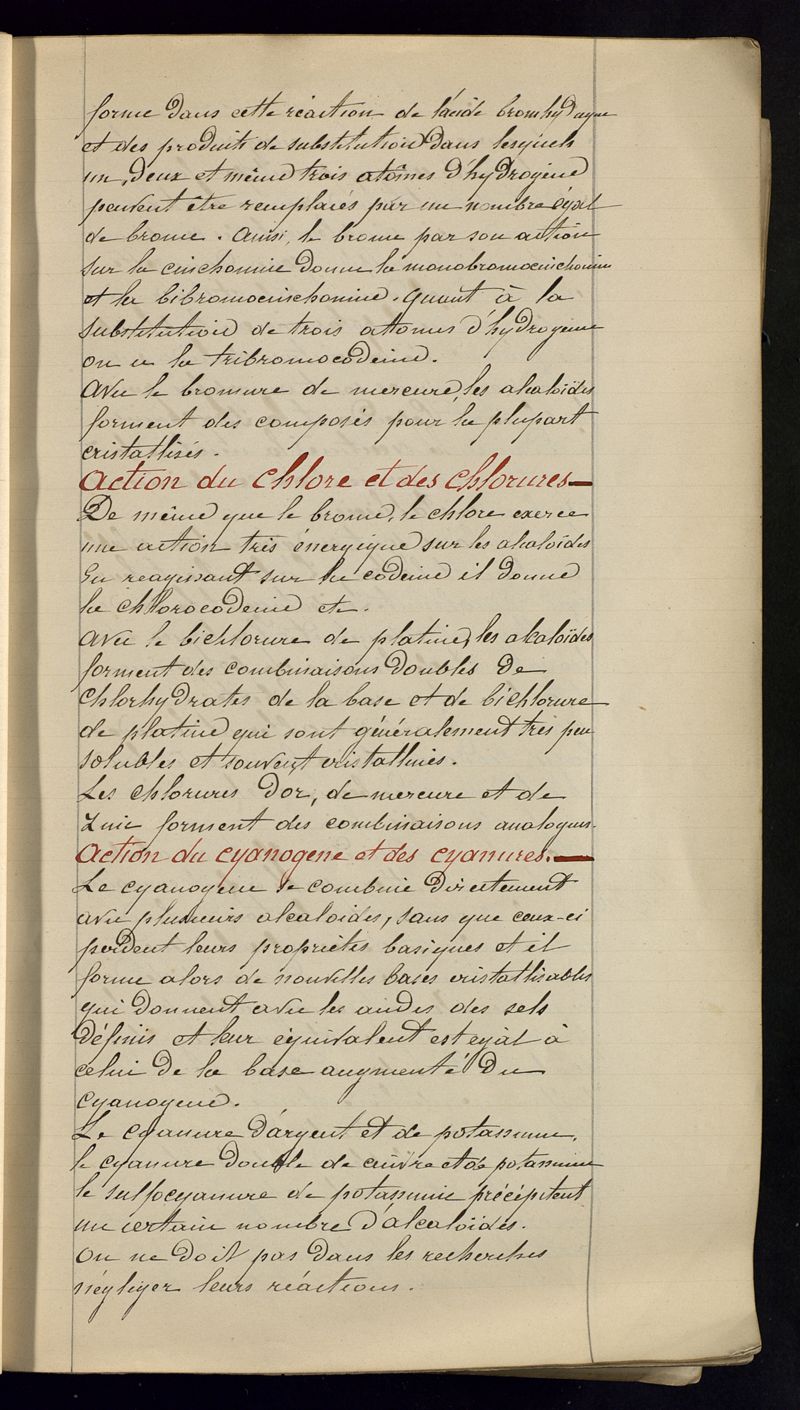 forme dans cette réaction de l'acide bromhydrique
et des produits de substitution dans lesquels
un, deux et même trois atômes d'hydrogène
peuvent être remplacés par un nombre égal
de brome. Ainsi, le brome par son action
sur la cinchonine donne la monobromocinchonine
et la bibromocinchonine. Quant à la
substitution de trois attomes d'hydrogène
on a la tribromocodeine.
Avec le bromure de mercure, les alcaloïdes
forment des composés pour la plupart
cristallisés.
Action du Chlore et des Chlorures
De même que le brome, le chlore exerce
une action très énergique sur les alcaloïdes
En reagissant sur la codeine il donne
la chlorocodeine etc.
Avec le bichlorure de platine, les alcaloïdes
forment des combinaisons doubles de
Chlorhydrates de la base et de bichlorure
de platine qui sont généralement très peu
solubles et souvent cristallines.
Les chlorures d'or, de mercure et de
zinc forment des combinaisons analogues.
Action du cyanogene et des cyanures.
Le cyanogene se combine directement
avec plusieurs alcaloides, sans que ceux-ci
perdent leurs propriétés basiques et il
forme alors de nouvelles bases cristallisables
qui donnent avec les acides des sels
définis et leur équivalent est egal à
celui de la base augmenté du
cyanogene.
Le cyanure d'argent et de potassium,
le cyanure double de cuivre et de potassium
le sulfocyanure de potassium précipitent
un certain nombre d'alcaloïdes.
On ne doit pas dans les recherches
négliger leurs réactions.